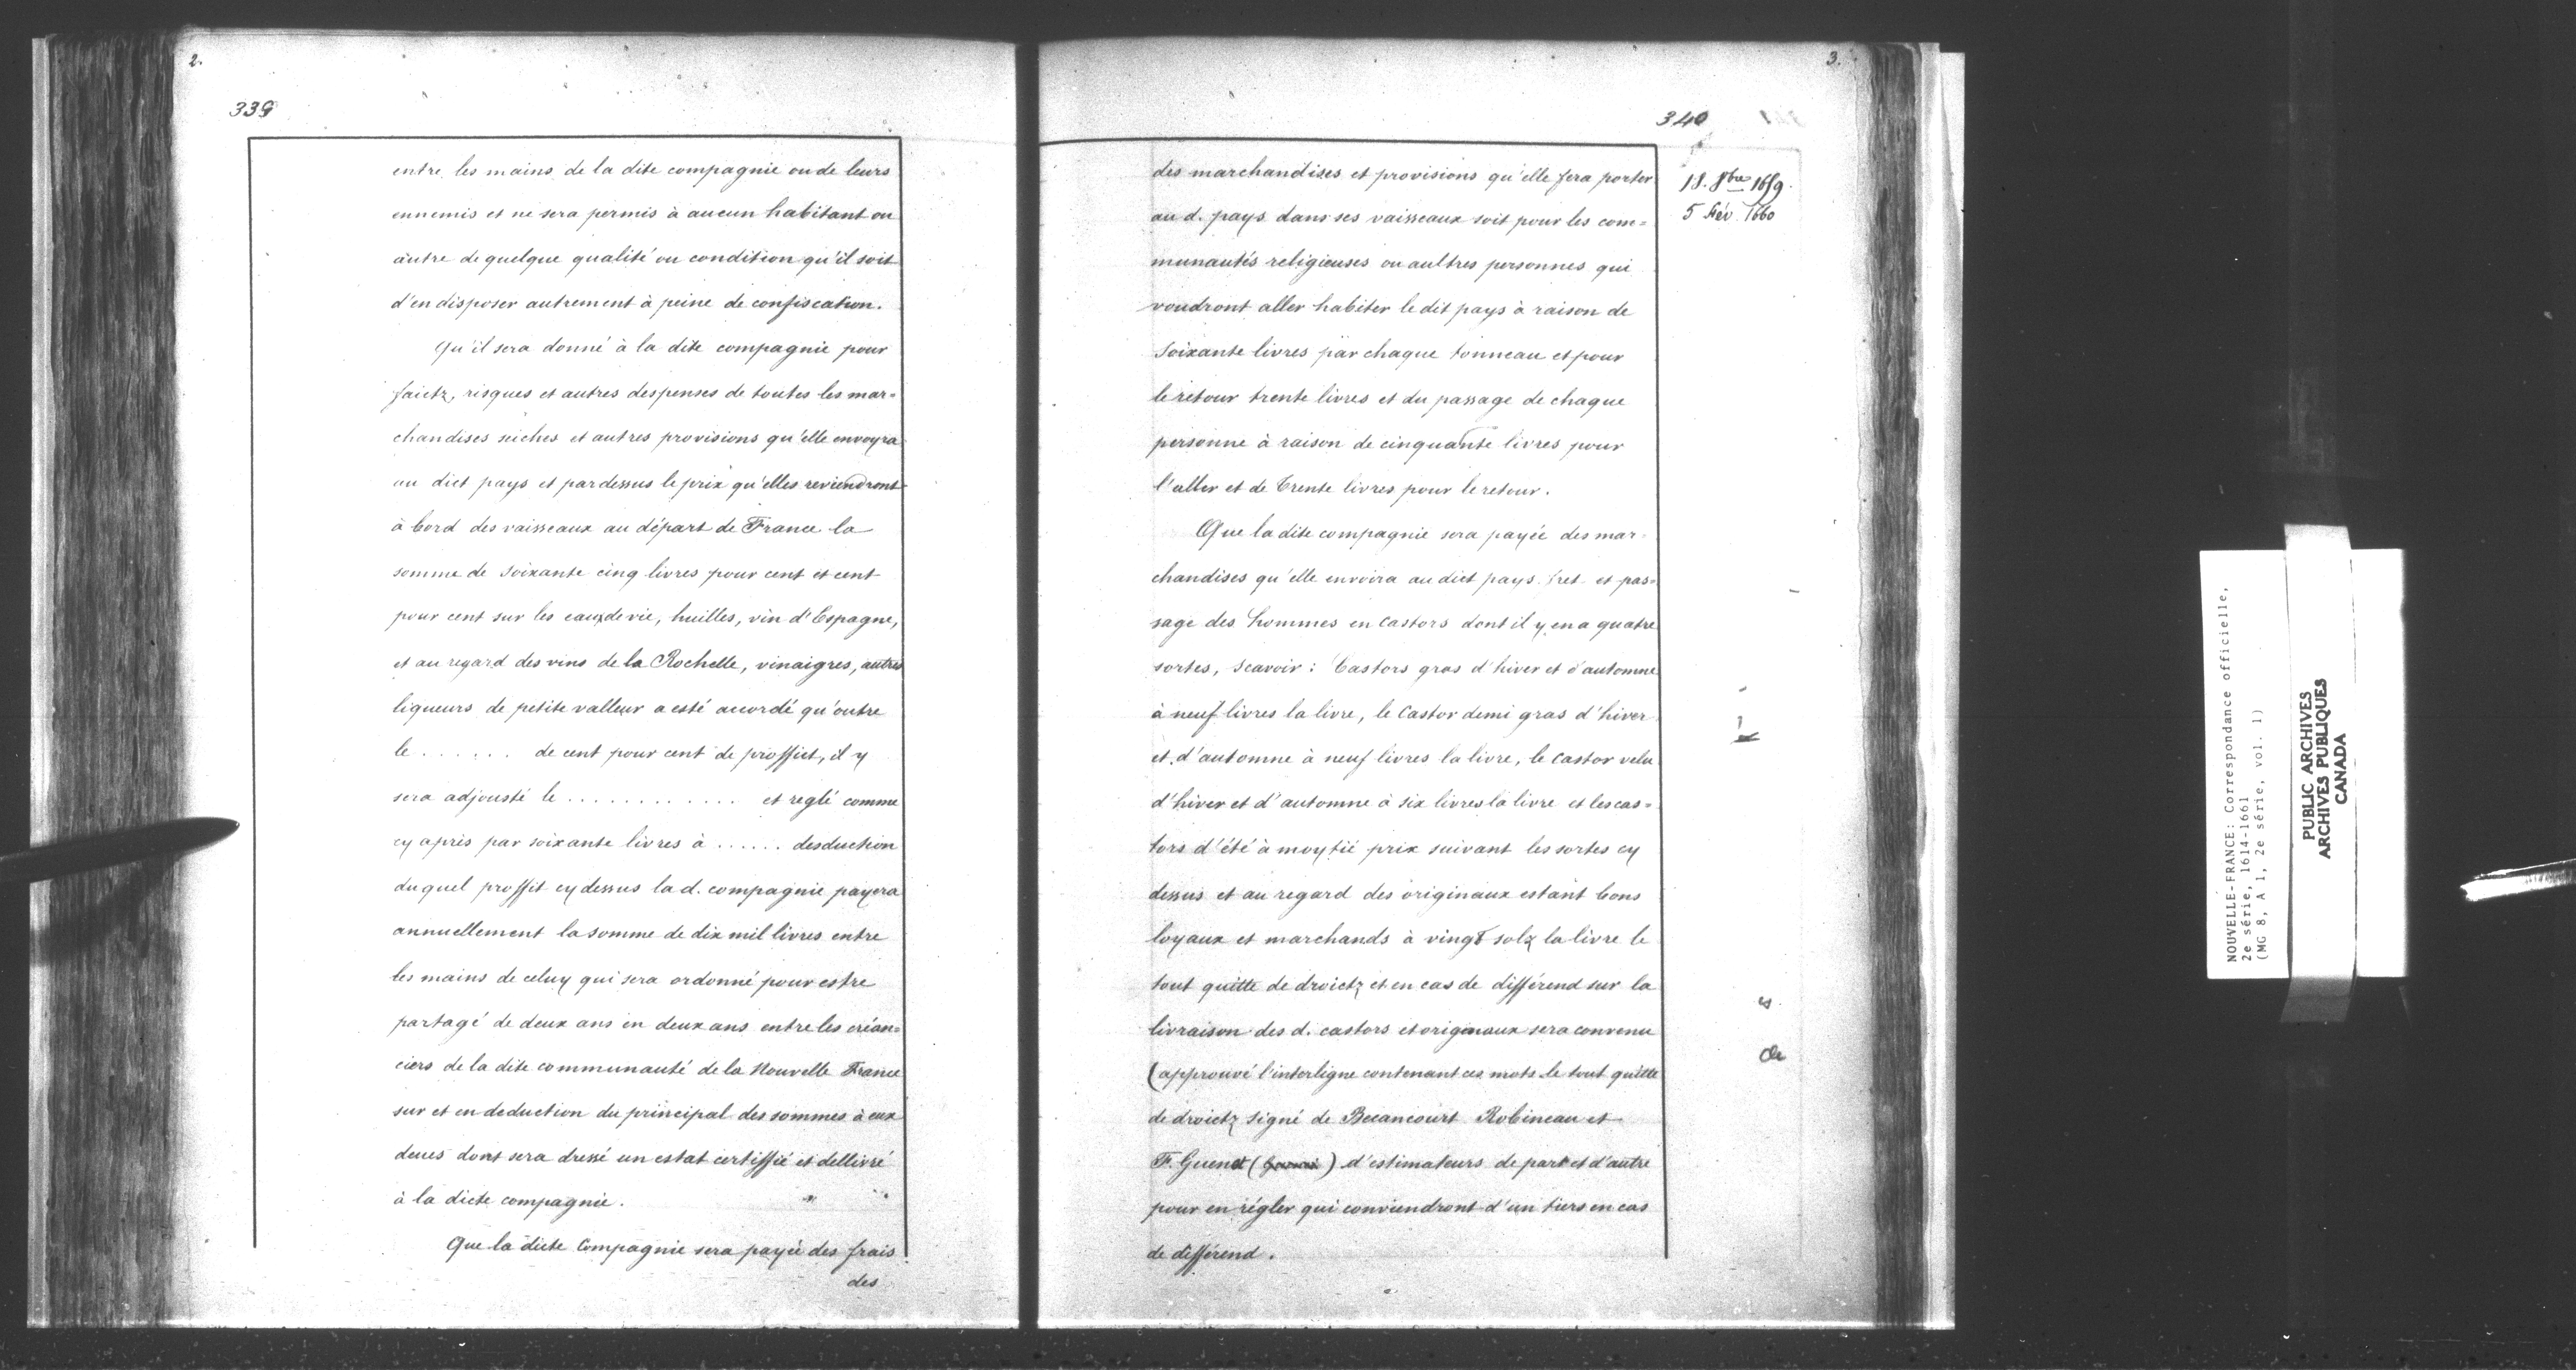 2.
339
entre les mains de la dite compagnie ou de leurs
ennemis et ne sera permis à aucun habitant ou
autre de quelque qualité ou condition qu'il soit
d'en disposer autrement à peine de confiscation.
Qu'il sera donné à la dite compagnie pour
faictz, risques et autres despenses de toutes les mar=
chandises seiches et autres provisions qu'elle envoyra
au dict pays et par dessus le prix qu'elles reviendront
à bord des vaisseaux au départ de France la
somme de soixante cinq livres pour cent et cent
pour cent sur les eaux de vie, huilles, vin d'Espagne,
et au regard des vins de la Rochelle, vinaigres, autres
liqueurs de petite valleur a esté accordé qu'outre
le ...... de cent pour cent de proffict, il y
sera adjousté le ............. et reglé comme
cy après par soixante livres à ...... desduction
du quel proffit cy dessus la d. compagnie payera
annuellement la somme de dix mil livres entre
les mains de celuy qui sera ordonné pour estre
partagé de deux ans en deux ans entre les créan=
ciers de la dite communauté de la Nouvelle France
sur et en deduction du principal des sommes à eux
deues dont sera dressé un estat certiffié et dellivré
à la dicte compagnie.
Que la dicte Compagnie sera payée des frais
des
3.
340
18. 8bre 1659.
5 Fév. 1660
des marchandises et provisions qu'elle fera porter
au d. pays dans ses vaisseaux soit pour les com=
munautés religieuses ou aultres personnes qui
voudront aller habiter le dit pays à raison de
soixante livres par chaque tonneau et pour
le retour trente livres et du passage de chaque
personne à raison de cinquante livres pour
l'aller et de trente livres pour le retour.
Que la dite compagnie sera payée des mar=
chandises qu'elle envoira au dict pays fret et pas=
sage des hommes en castors dont il y en a quatre
sortes, scavoir: Castors gras d'hiver et d'automne
à neuf livres la livre, le Castor demi gras d'hiver
et d'automne à neuf livres la livre, le castor velu
d'hiver et d'automne à six livres la livre et les cas=
tors d'été à moytié prix suivant les sortes cy
dessus et au regard des originaux estant bons
loyaux et marchands à vingt solz la livre le
tout quitte de droictz et en cas de différend sur la
livraison des d. castors et originaux sera convenu
(approuvé l'interligne contenant ces mots le tout quitte
de droictz signé de Becancourt Robineau et
F. Guenet ( ) d'estimateurs de part et d'autre
pour en régler qui conviendront d'un tiers en cas
de différend.
NOUVELLE-FRANCE: Correspondance officielle,
2e série, 1614-1661
(MG 8, A 1, 2e série, vol. 1)
PUBLIC ARCHIVES
ARCHIVES PUBLIQUES
CANADA